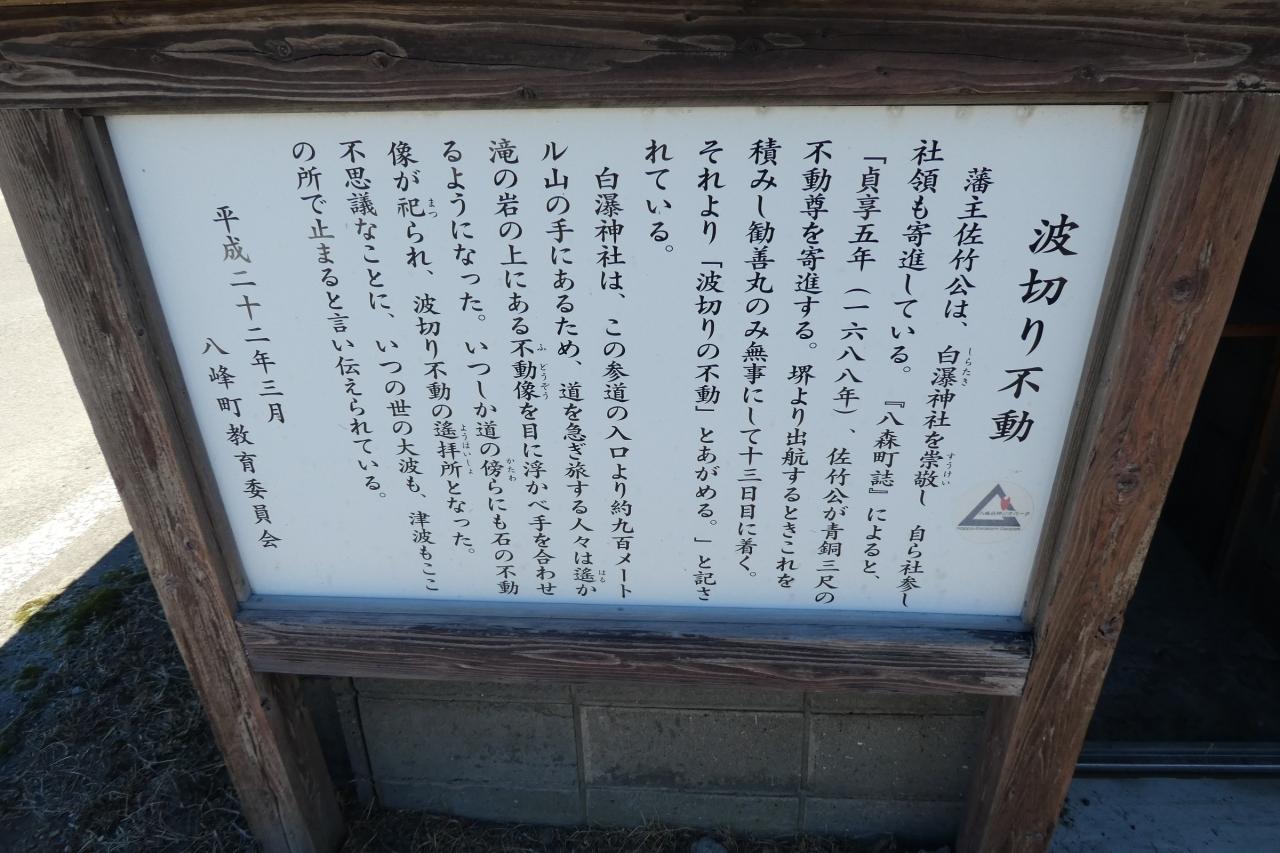 波切り不動
藩主佐竹公は、白瀑神社を崇敬し 自ら社参し
社領も寄進している。『八森町誌』によると、
「貞享五年（一六八八年）、佐竹公が青銅三尺の
不動尊を寄進する。堺より出航するときこれを
積みし勧善丸のみ無事にして十三日目に着く。
それより「波切りの不動」とあがめる。」と記さ
れている。
白瀑神社は、この参道の入口より約九百メート
ル山の手にあるため、道を急ぎ旅する人々は遙か
滝の岩の上にある不動像を目に浮かべ手を合わせ
るようになった。いつしか道の傍らにも石の不動
像が祀られ、波切り不動の遙拝所となった。
不思議なことに、いつの世の大波も、津波もここ
の所で止まると言い伝えられている。
平成二十二年三月
八峰町教育委員会